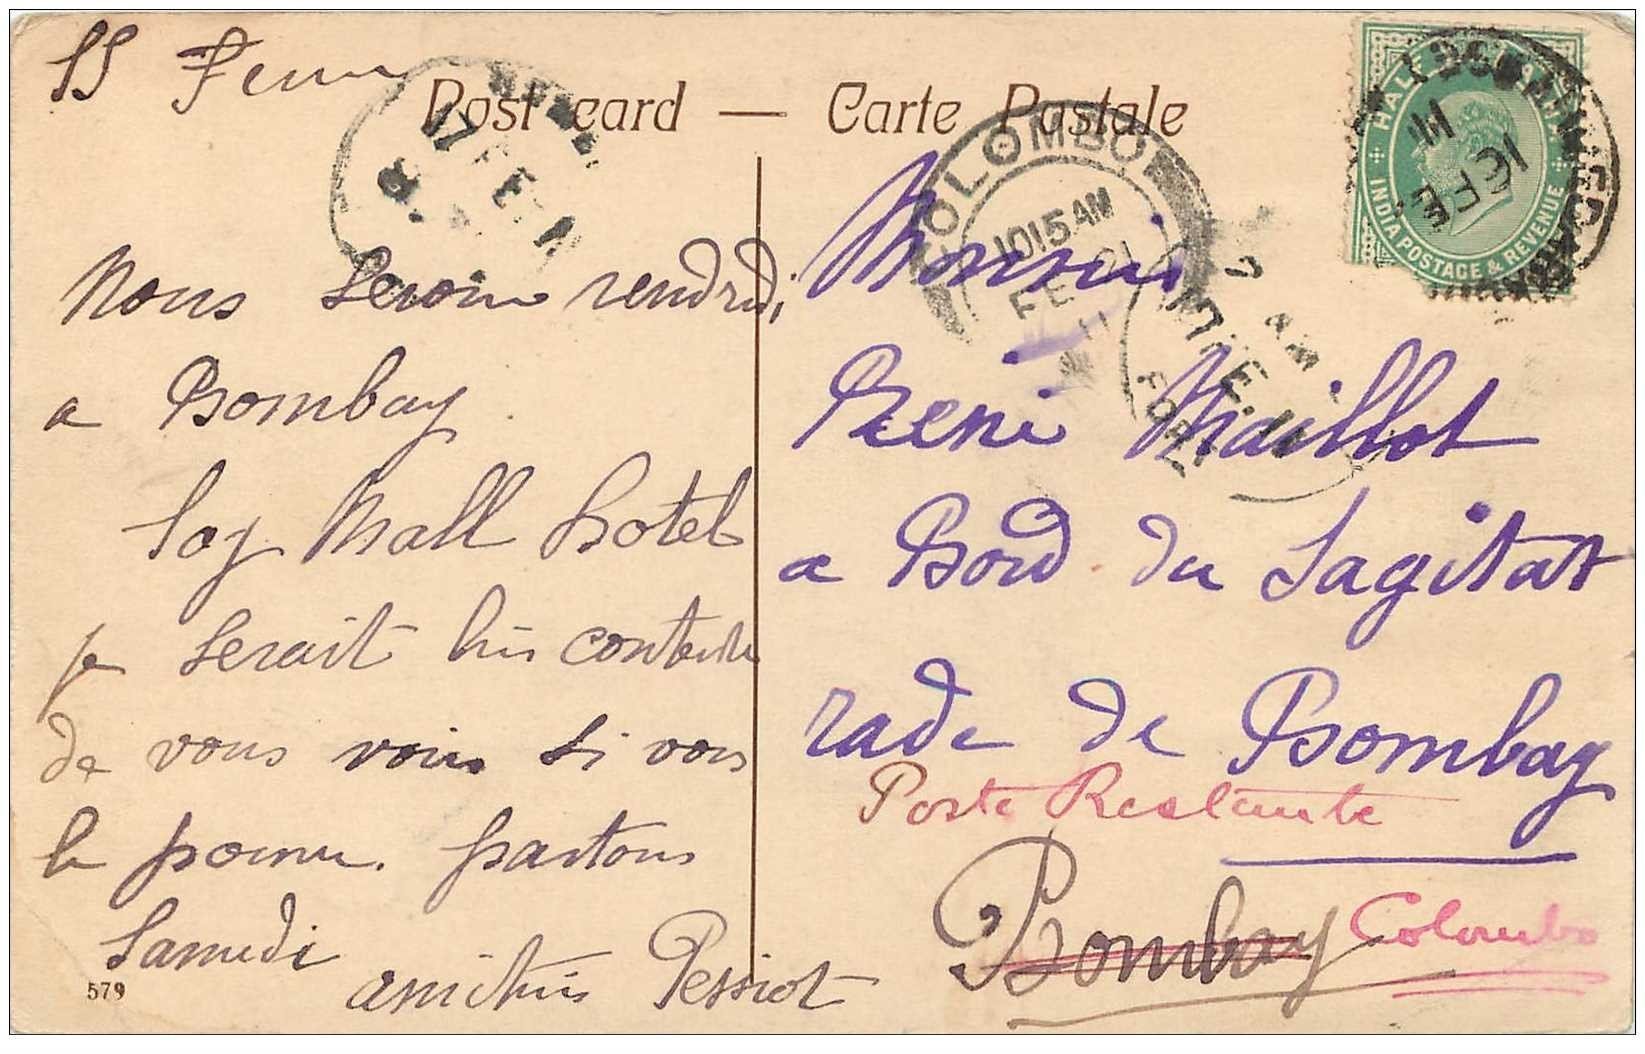 15
Post card — Carte Postale
HALF ANNA
INDIA POSTAGE & REVENUE
16 FE
11
COLOMBO
10 15 AM
FE 21
11
17 FE
7 AM
17 FE 11
Nous serons vendredi
a Bombay
Taj Mall hotel
je serait bien contente
de vous voir si vous
le pouvez. partons
Samedi
amitiés Pessiot
579
Monsieur
René Maillot
a Bord du Sagitar
rade de Bombay
Poste Restante
Bombay Colombo